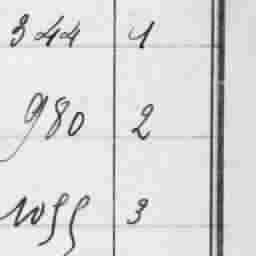 344 1
980 2
1055 3